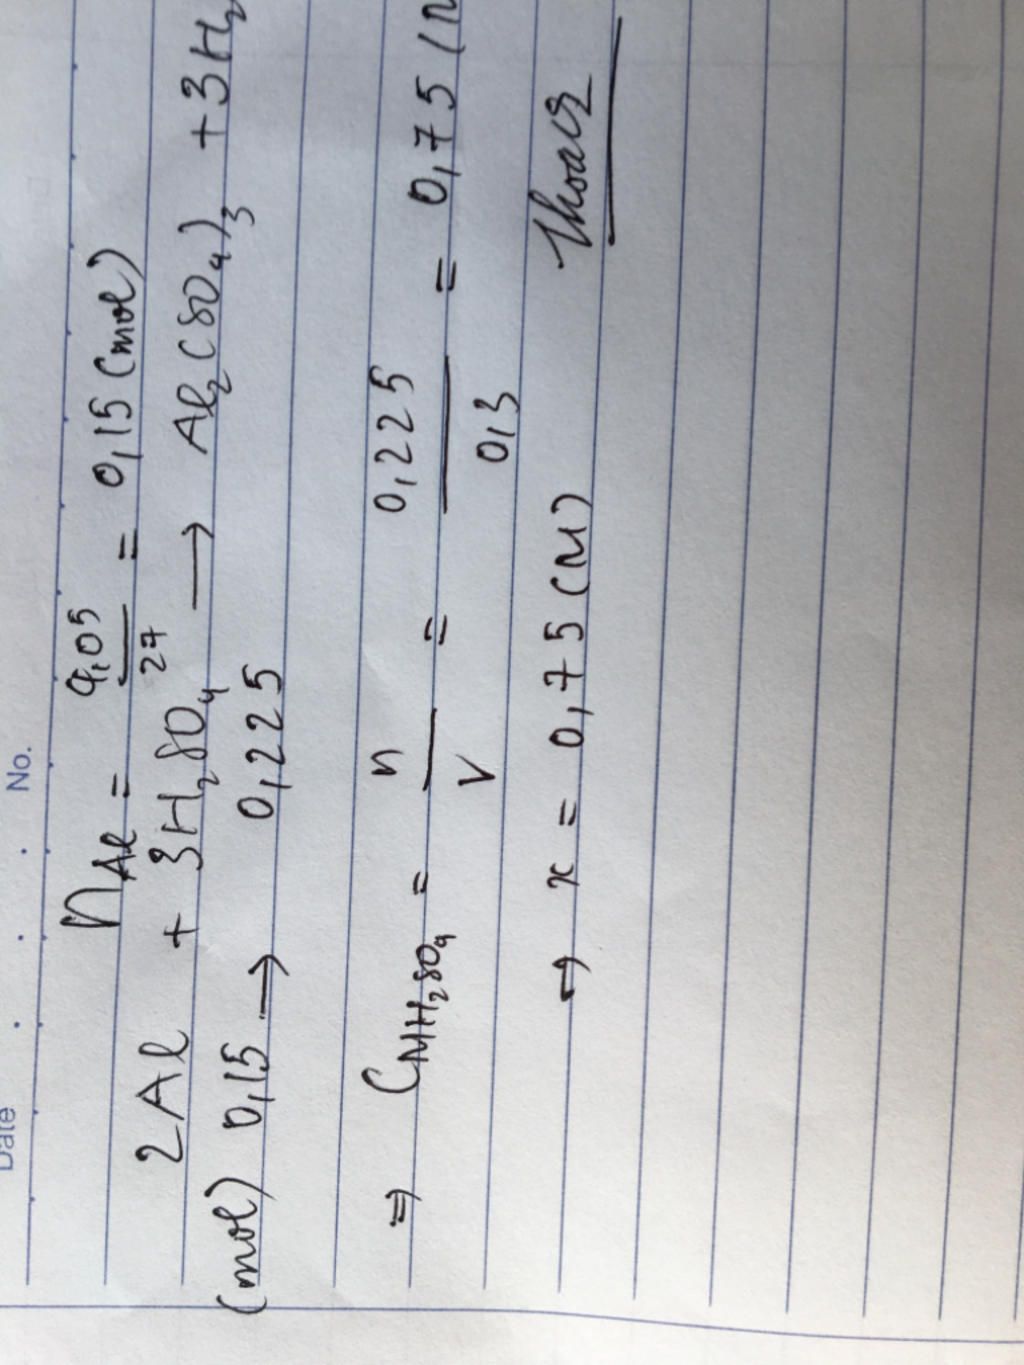 Date No.
n Al = 4,05/27 = 0,15 (mol)
2Al + 3H₂SO₄ → Al₂(SO₄)₃ + 3H₂
(mol) 0,15 → 0,225
⇒ CMH₂SO₄ = n/V = 0,225/0,3 = 0,75 (
⇔ x = 0,75 (M)